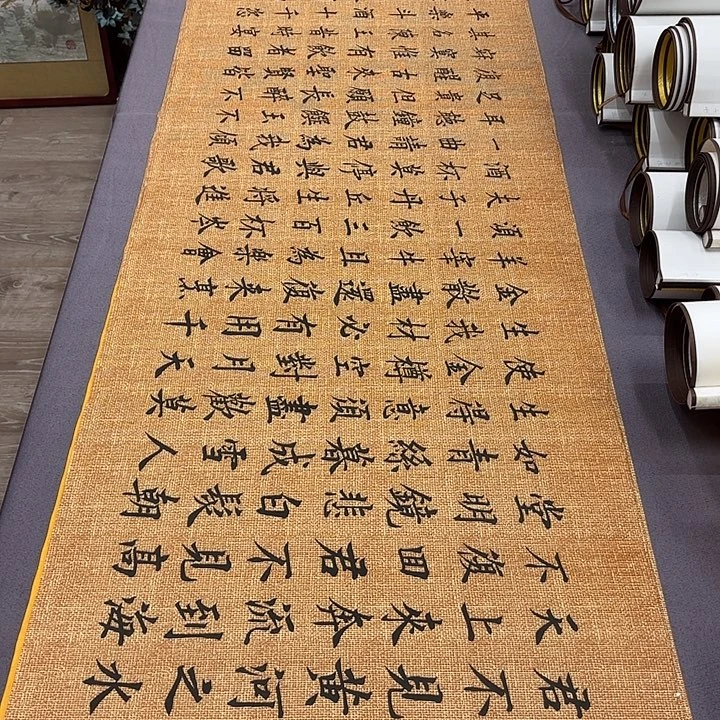 君不見黃河之水
天上來奔流到海
不復回君不見高
堂明鏡悲白髮朝
如青絲暮成雪人
生得意須盡歡莫
使金樽空對月天
生我材必有用千
金散盡還復來烹
羊宰牛且為樂會
須一飲三百杯岑
夫子丹丘生將進
酒杯莫停與君歌
一曲請君為我傾
耳聽鐘鼓饌玉不
足貴但願長醉不
復醒古來聖賢皆
寂寞惟有飲者留
其名陳王昔時宴
平樂斗酒十千恣